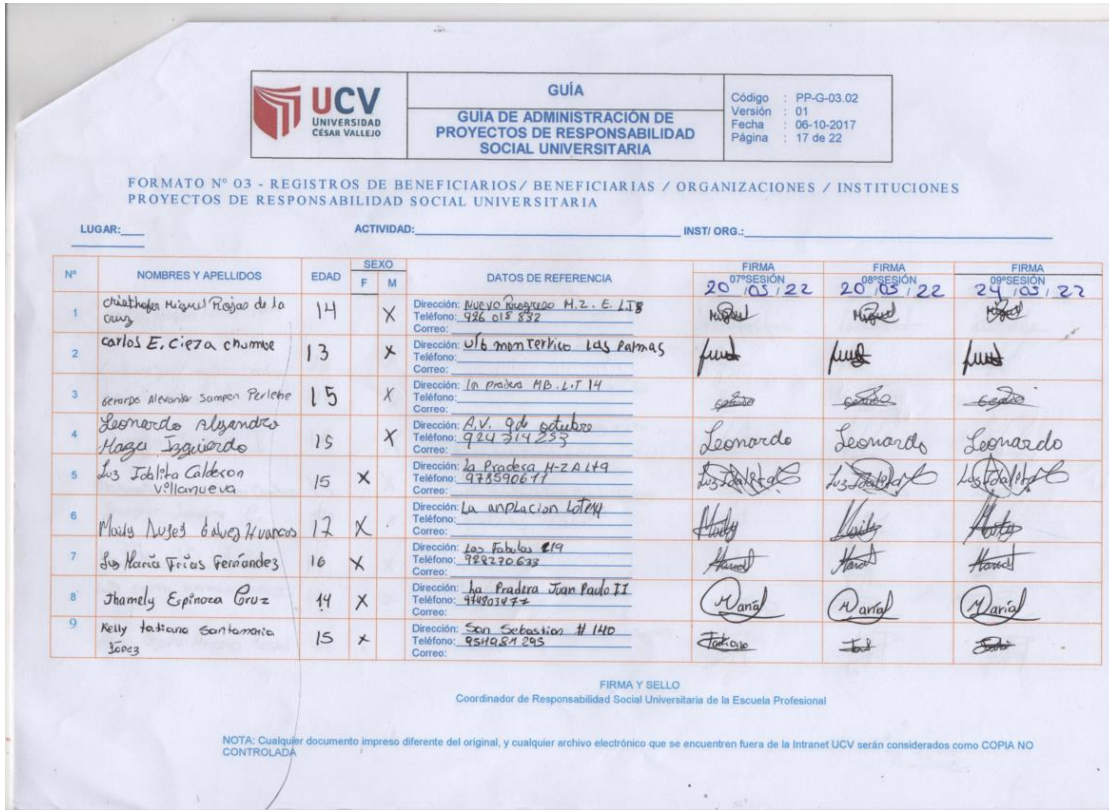 UCV
UNIVERSIDAD
CÉSAR VALLEJO
GUÍA
GUÍA DE ADMINISTRACIÓN DE
PROYECTOS DE RESPONSABILIDAD
SOCIAL UNIVERSITARIA
Código : PP-G-03.02
Versión : 01
Fecha : 06-10-2017
Página : 17 de 22
FORMATO Nº 03 - REGISTROS DE BENEFICIARIOS/ BENEFICIARIAS / ORGANIZACIONES / INSTITUCIONES
PROYECTOS DE RESPONSABILIDAD SOCIAL UNIVERSITARIA
LUGAR:____ ACTIVIDAD:____ INST/ ORG.:____
Nº NOMBRES Y APELLIDOS EDAD SEXO F M DATOS DE REFERENCIA FIRMA 07ªSESIÓN FIRMA 08ªSESIÓN FIRMA 09ªSESIÓN
20 / 05 / 22 20 / 05 / 22 24 / 05 / 22
1 Miguel Rojas de la
cruz
14 X
Dirección: Nuevo Progreso M.Z. E.
Teléfono: 926 015 832
Correo:
Miguel Miguel Miguel
2 carlos E. Cieza chumbe 13 X
Dirección: Las Palmas
Teléfono:
Correo:
3 Alexander 15 X
Dirección: la pradera MB. L.T 14
Teléfono:
Correo:
4 Leonardo Alejandro
Izquierdo
15 X
Dirección: A.V. 9 de octubre
Teléfono: 924 314 253
Correo:
Leonardo Leonardo Leonardo
5 Luz Idalita Calderon
Villanueva
15 X
Dirección: La Pradera
Teléfono: 978590671
Correo:
6 17 X
Dirección: La
Teléfono:
Correo:
7 María Frías Fernández 16 X
Dirección: Las Fabulas
Teléfono: 928270633
Correo:
8 Jhamely Espinoza Cruz 14 X
Dirección: La Pradera Juan Paulo II
Teléfono:
Correo:
9 Kelly tatiana Santamaria
López
15 x
Dirección: San Sebastian # 140
Teléfono: 954984295
Correo:
FIRMA Y SELLO
Coordinador de Responsabilidad Social Universitaria de la Escuela Profesional
NOTA: Cualquier documento impreso diferente del original, y cualquier archivo electrónico que se encuentren fuera de la Intranet UCV serán considerados como COPIA NO
CONTROLADA